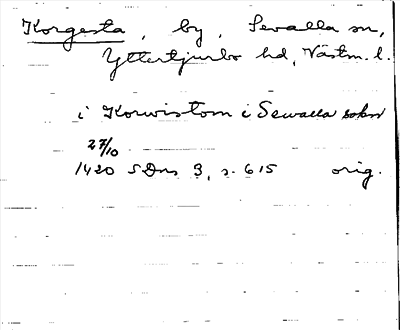 Korgesta, by, Sevalla sn,
Yttertjurbo hd, Västm. l.
i Korwistom i Sewalla sokn
27/10
1420 SDns 3, s. 615 orig.